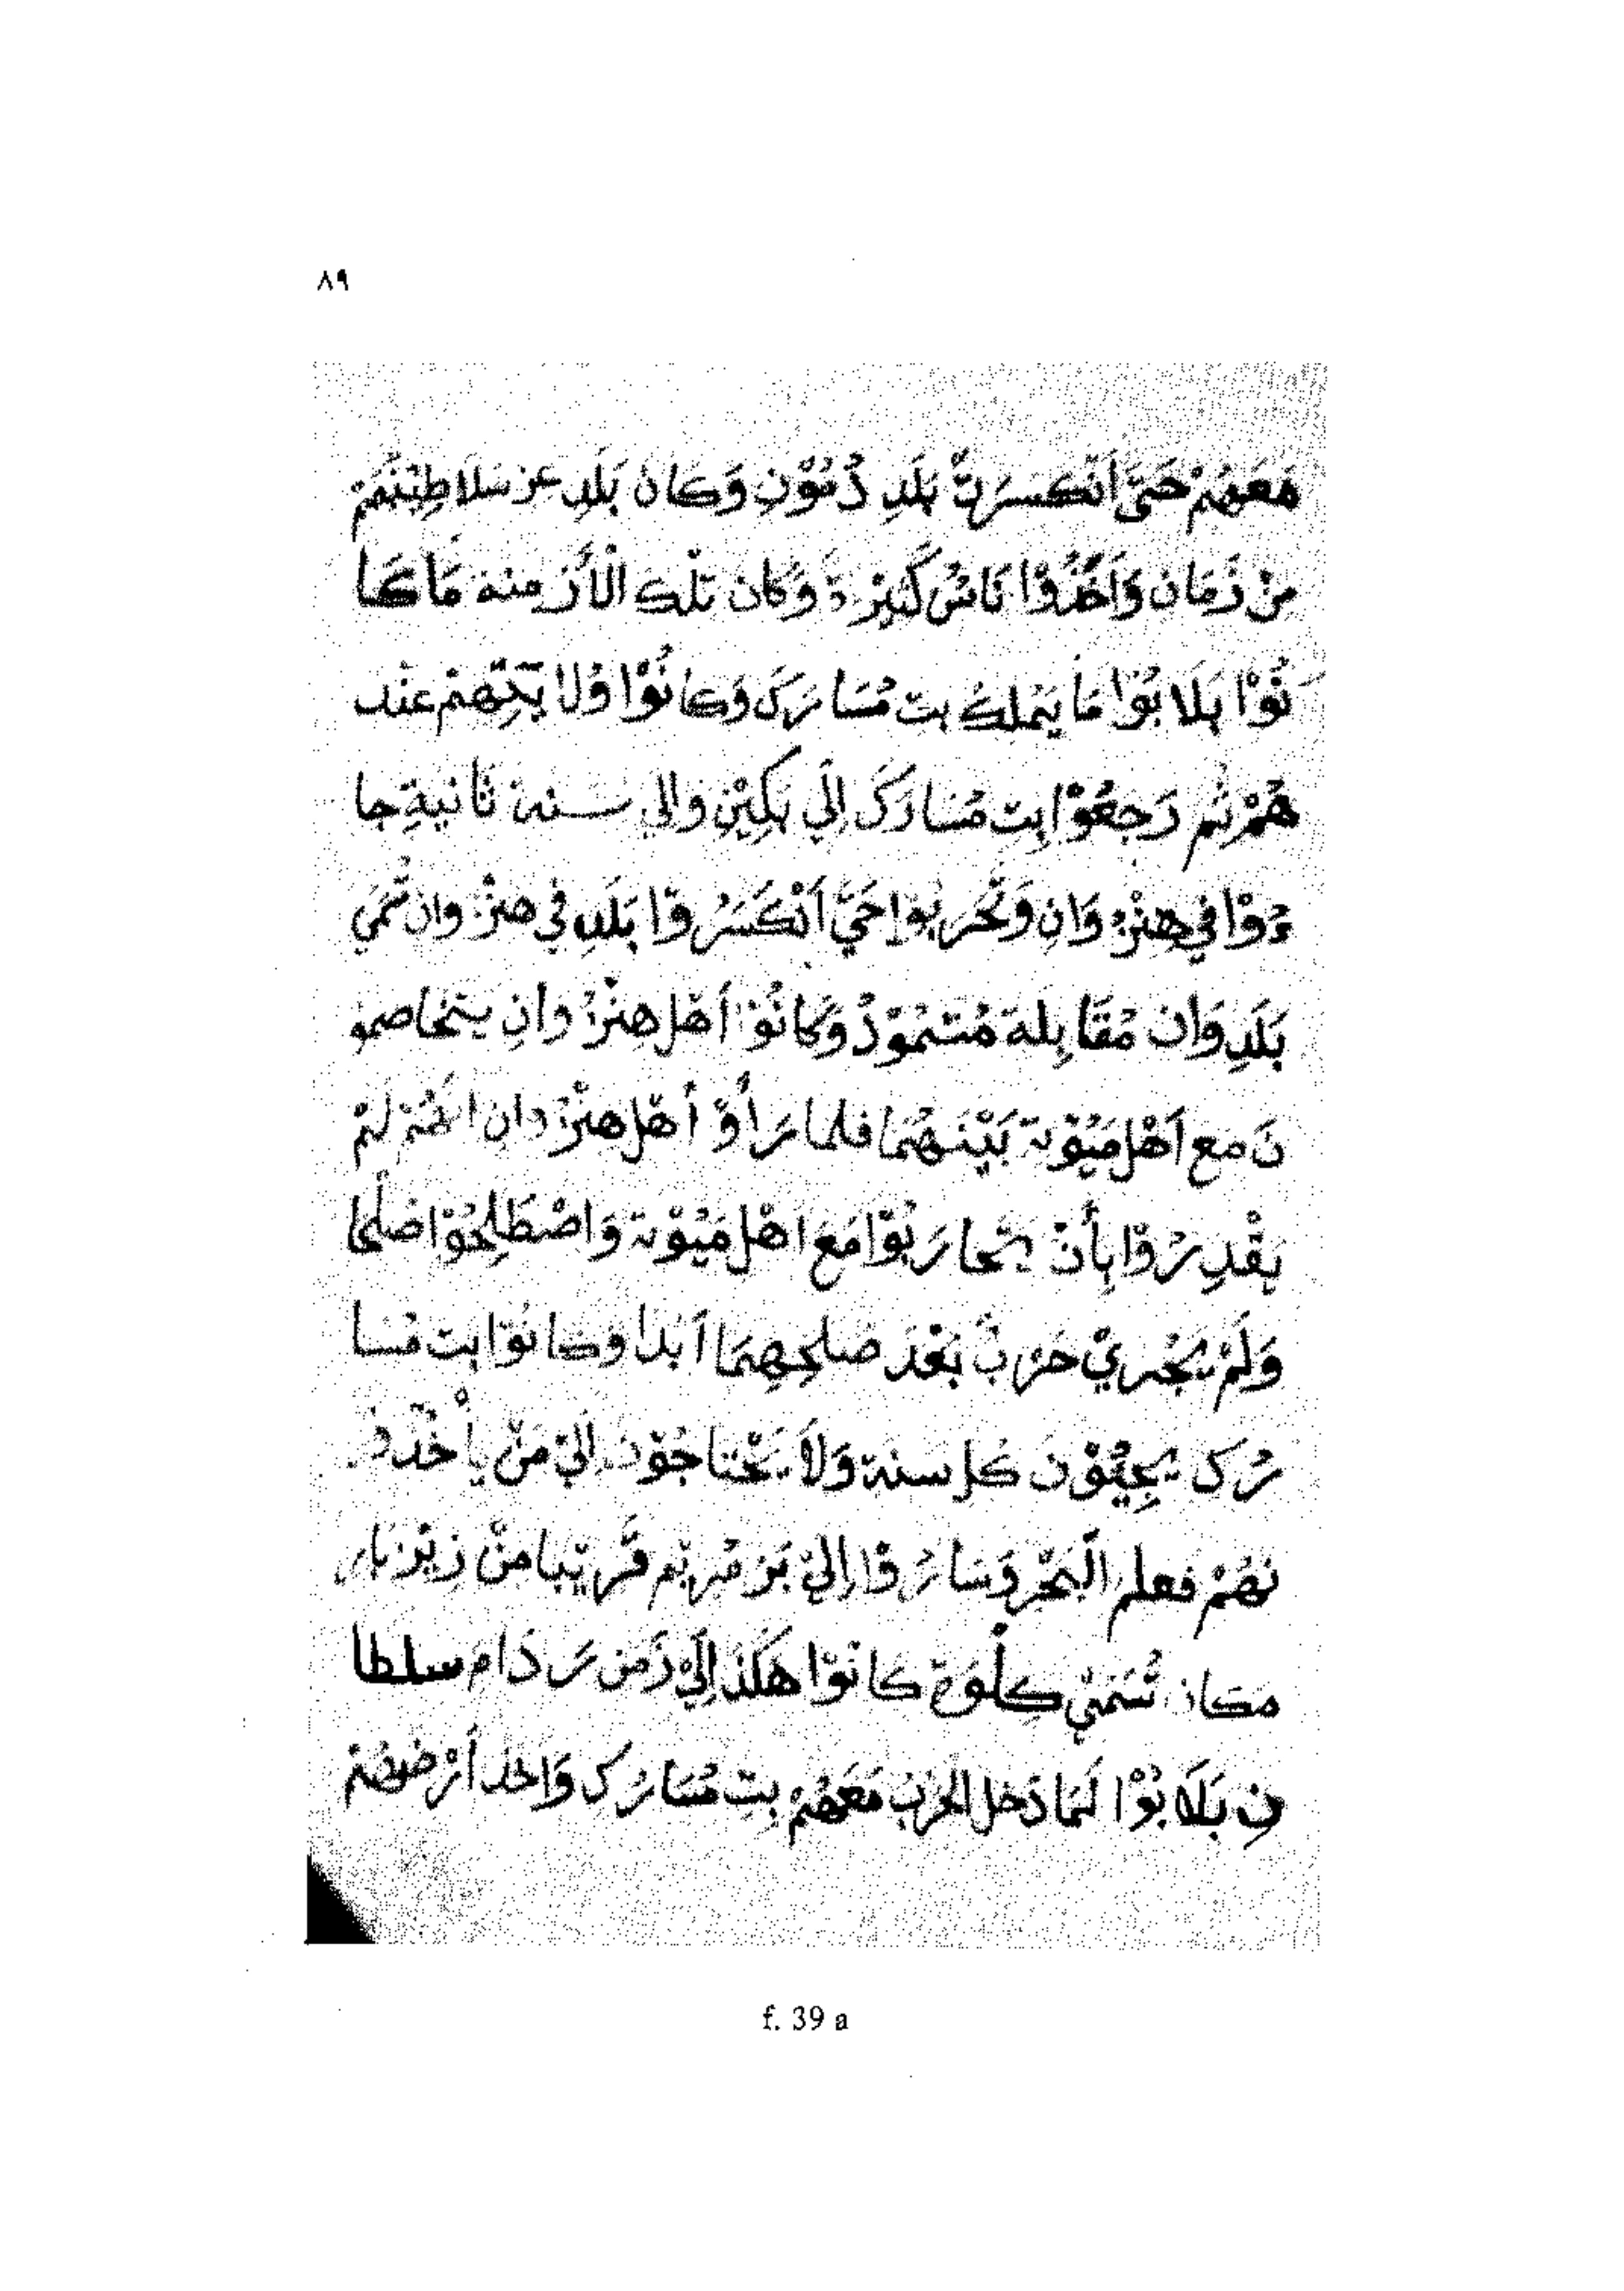 ٨٩
مَعَهُمْ حَتَّى اَنْكَسَرَتْ بَلَدِ دُمُوْنِ وَكَانَ بَلَدِ عز سَلَاطِيْنَهُمْ
مِنْ زَمَانِ وَاَخَذُوْا نَاسُ كَثِيْرَة وَكَانَ تلْكَ الْأَزْمِنة مَا كَا
نُوْا بَلَا بُوْا مَا يَمْلِكُ بت مُسَا رَكَ وَكَا نُوْا وُلَا يَتِهِمْ عنْد
هُمْ ثُم رَجعُوْا بِت مُسَا رَكَ اِلَي بَكِيْنِ والي سنة ثَانية جا
ءوْا في هِنْزُ وَانِ وَتَحَر بُوْا حَتَّي اَنْكَسَرُ وْا بَلَدِ في هنْزُ وان تُسَمَي
بَلَدِ وَان مُقَا بِلة مُتسَمُوْدُ وَكَا نُوْ اَهْل هِنْزُ وَانِ يتخاصمو
نَ مع اَهْل مَيُوْتة بَيْنَهُمَا فلما رَأَ وْ أَهْل هِنْزُ وانِ انهُمْ لَمْ
يقْدِ رُ وْا بِأَنْ يتحا رَ بُوْا مَعَ اهْل مَيُوْتة وَاصْطَلِحُوْا صُلحا
وَلَمْ يَجْرِيْ حَرْ بٌ بَعْدَ صلحِهِمَا اَبَدا وكا نُوْا بت مُسا
رُ كَ يَجِيْئُوْنَ كُل سنة وَلَا يَحْتَاجُوْنَ الي مَنْ يأْخُدُو
نَهُمْ فعلم الْبَحْر وَسَا رُ وْا اِليْ بَرْ مْرِيْم قَرِيْبا منْ زِنْزِبَا ر
مكان تُسَمَيْ كِلْوَة كا نُوْا هَكَذَ اِلَيْ زَمن رَ دَا مَ سلطا
نِ بَلَا بُوْا لَمَا دَخل الحَرْبُ مَعَهُمْ بِت مُسَا رُكِ وَاخذ أَرْضهُمْ
f. 39 a